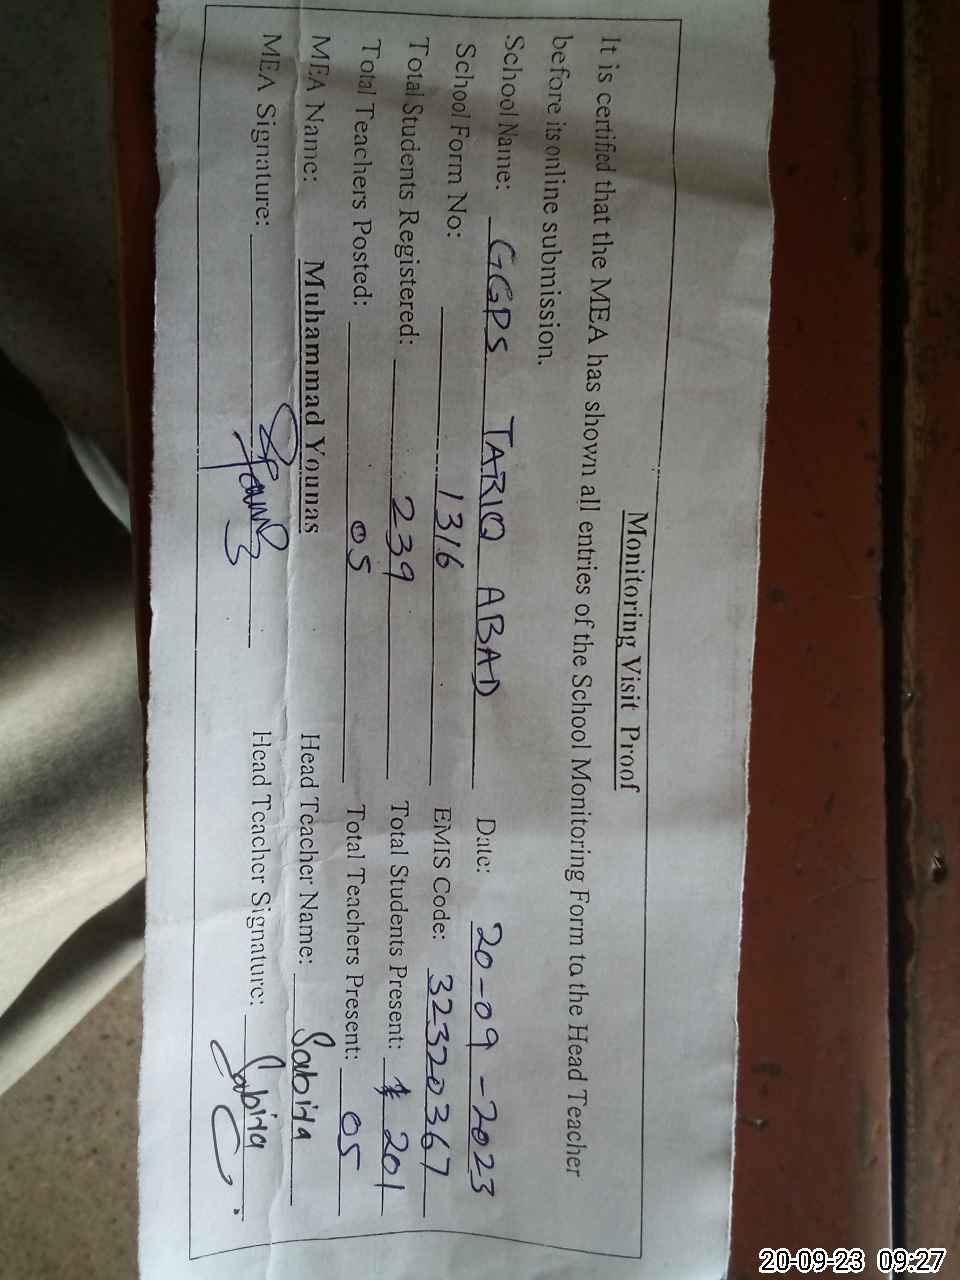 Monitoring Visit Proof
It is certified that the MEA has shown all entries of the School Monitoring Form to the Head Teacher
before its online submission.
School Name: GGPS TARIQ ABAD Date: 20-09-2023
School Form No: 1316 EMIS Code: 32320367
Total Students Registered: 239 Total Students Present: 201
Total Teachers Posted: 05 Total Teachers Present: 05
MEA Name: Muhammad Younas Head Teacher Name: Sabiha
MEA Signature: Head Teacher Signature: Sabiha
20-09-23 09:27